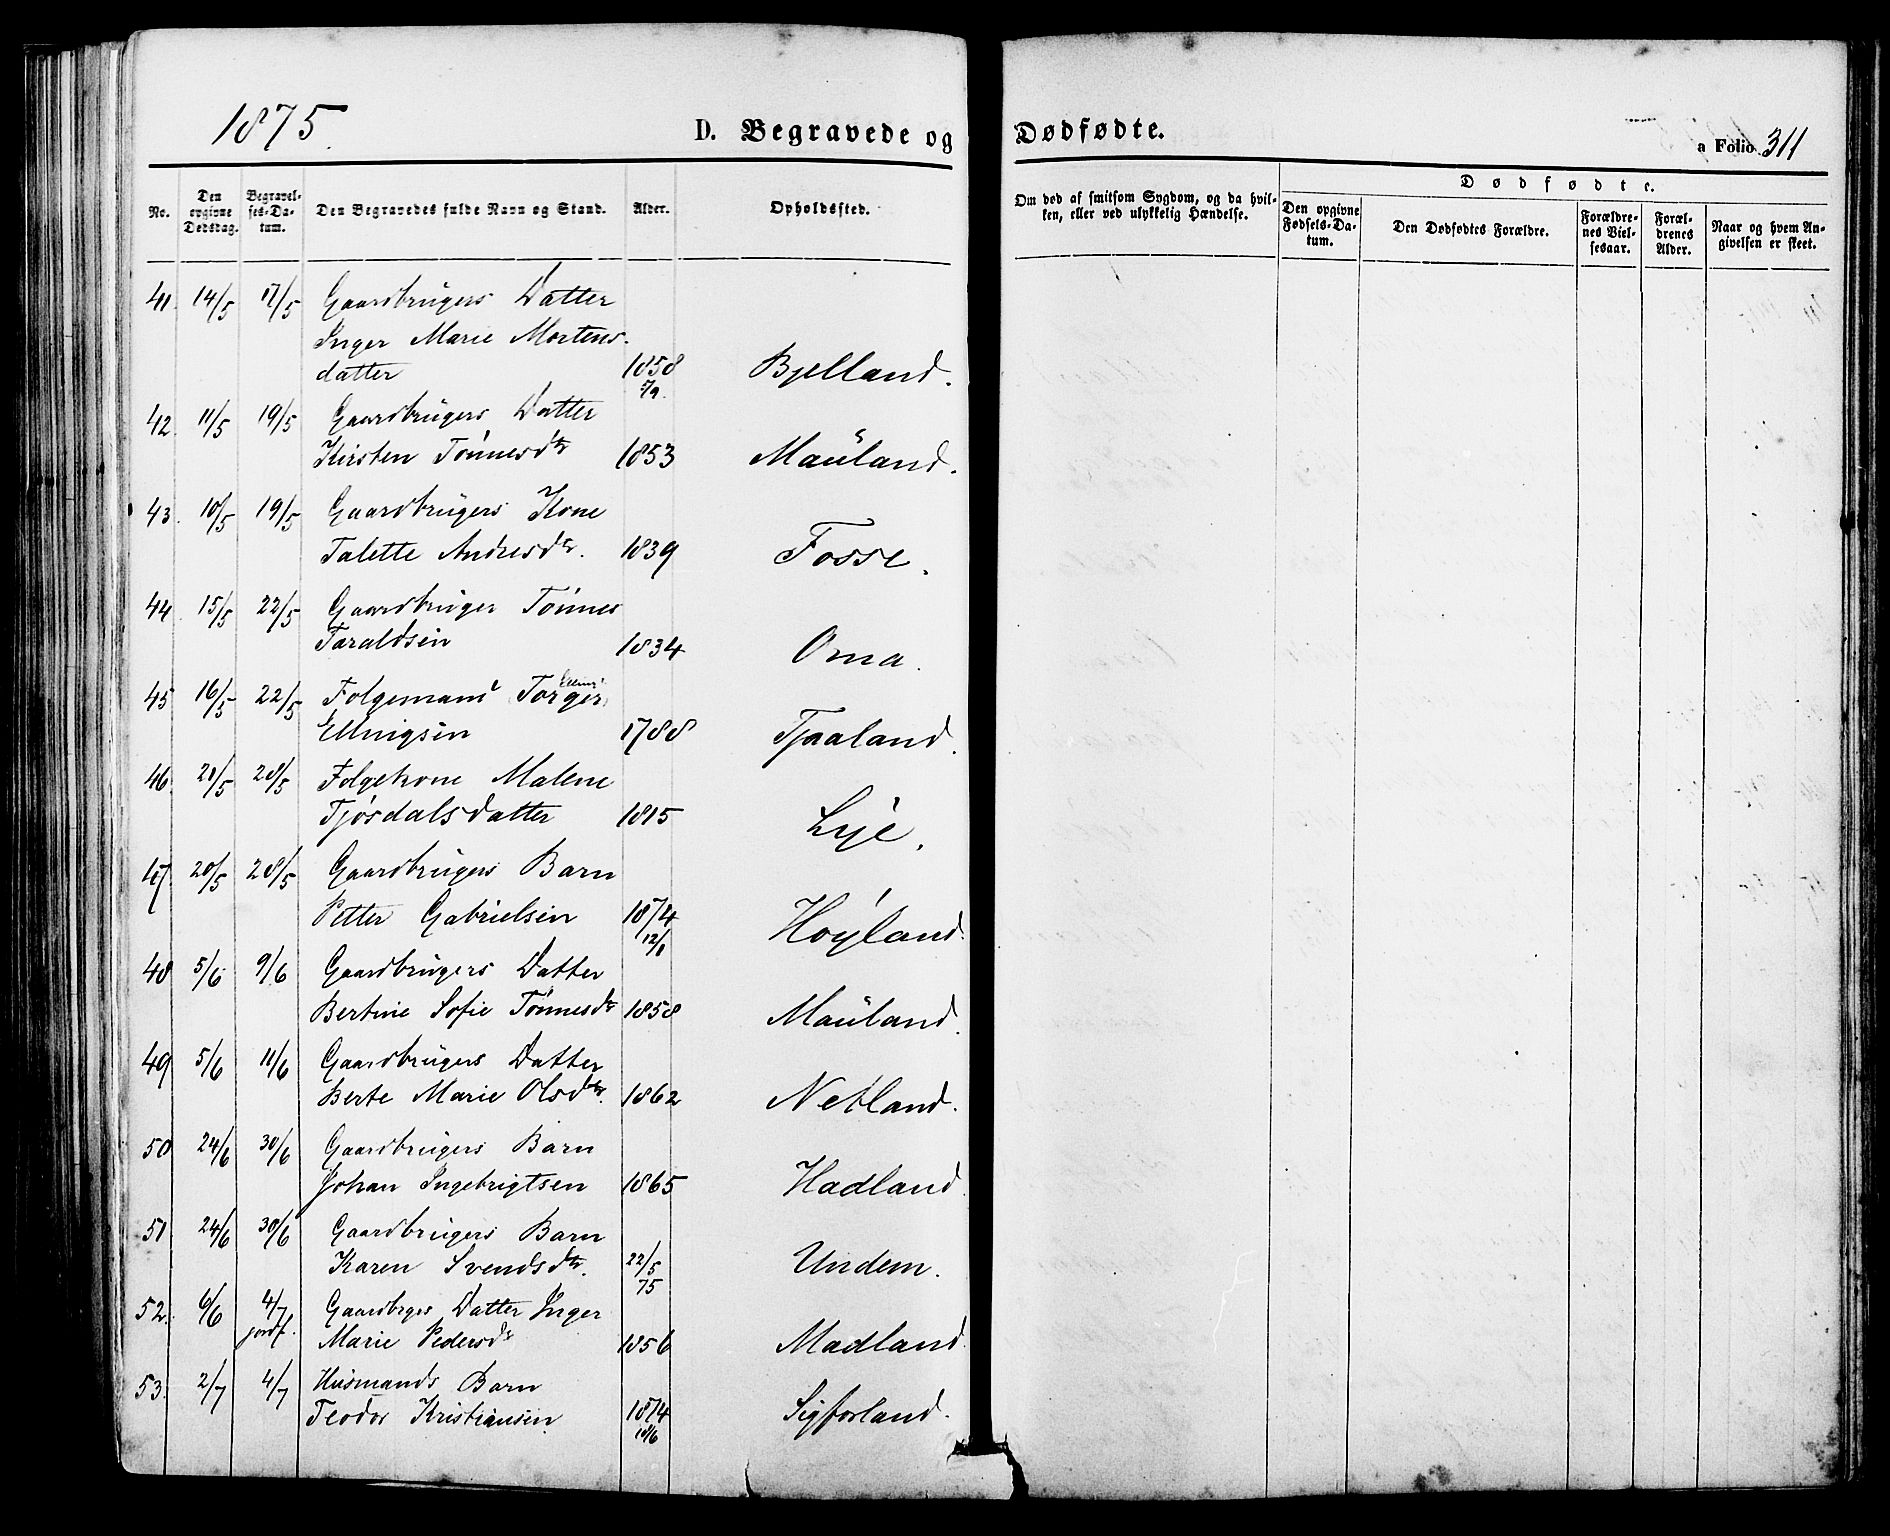 1875.
D. Begravede og Dødfødte.
a Folio 311
No.
Den opgivne Dødsdag.
Begravelses-Datum.
Den Begravedes fulde Navn og Stand.
Alder.
Opholdssted.
Om død af smitsom Sygdom, og da hvilken, eller ved ulykkelig Hændelse.
Dødfødte.
Den opgivne Fødsels-Datum.
Den Dødfødtes Forældre.
Forældrenes Vielsesaar.
Forældrenes Alder.
Naar og hvem Angivelsen er skeet.
41. 14/5 17/5 Gaardbrugers Datter
Inger Marie Mortens-
datter 1858 Bjelland.
5/9.
42. 11/5 19/5 Gaardbrugers Datter
Kirsten Tönnesdtr 1853 Mauland.
43. 10/5 19/5 Gaardbrugers Kone
Talette Andresdtr. 1839 Fosse.
44. 15/5 22/5 Gaardbruger Tönnes
Taraldsen 1834 Oma.
45 16/5 22/5 Folgemand Torger
Ellingsen 1788 Tjaaland.
46. 21/5 28/5 Folgekone Malene
Tjösdalsdatter 1815 Lye.
47. 20/5 28/5 Gaardbrugers Barn
Petter Gabrielsen 1874 Höyland.
12/1
48 5/6 9/6 Gaardbrugers Datter
Bertine Sofie Tönnesdtr 1858 Mauland.
49 5/6 11/6 Gaardbrugers Datter
Berte Marie Olsdtr. 1862 Netland.
50 24/6 30/6 Gaardbrugers Barn
Johan Ingebrigtsen 1865 Hadland.
51 24/6 30/6 Gaardbrugers Barn
Karen Svendsdtr. 22/5 75 Undem.
52. 6/6 4/7 jordf. Gaardbrgers Datter Inger
Marie Pedersdr 1856 Madland.
53. 2/7 4/7 Husmands Barn
Teodor Kristiansen. 1874 Sigforland.
18/6